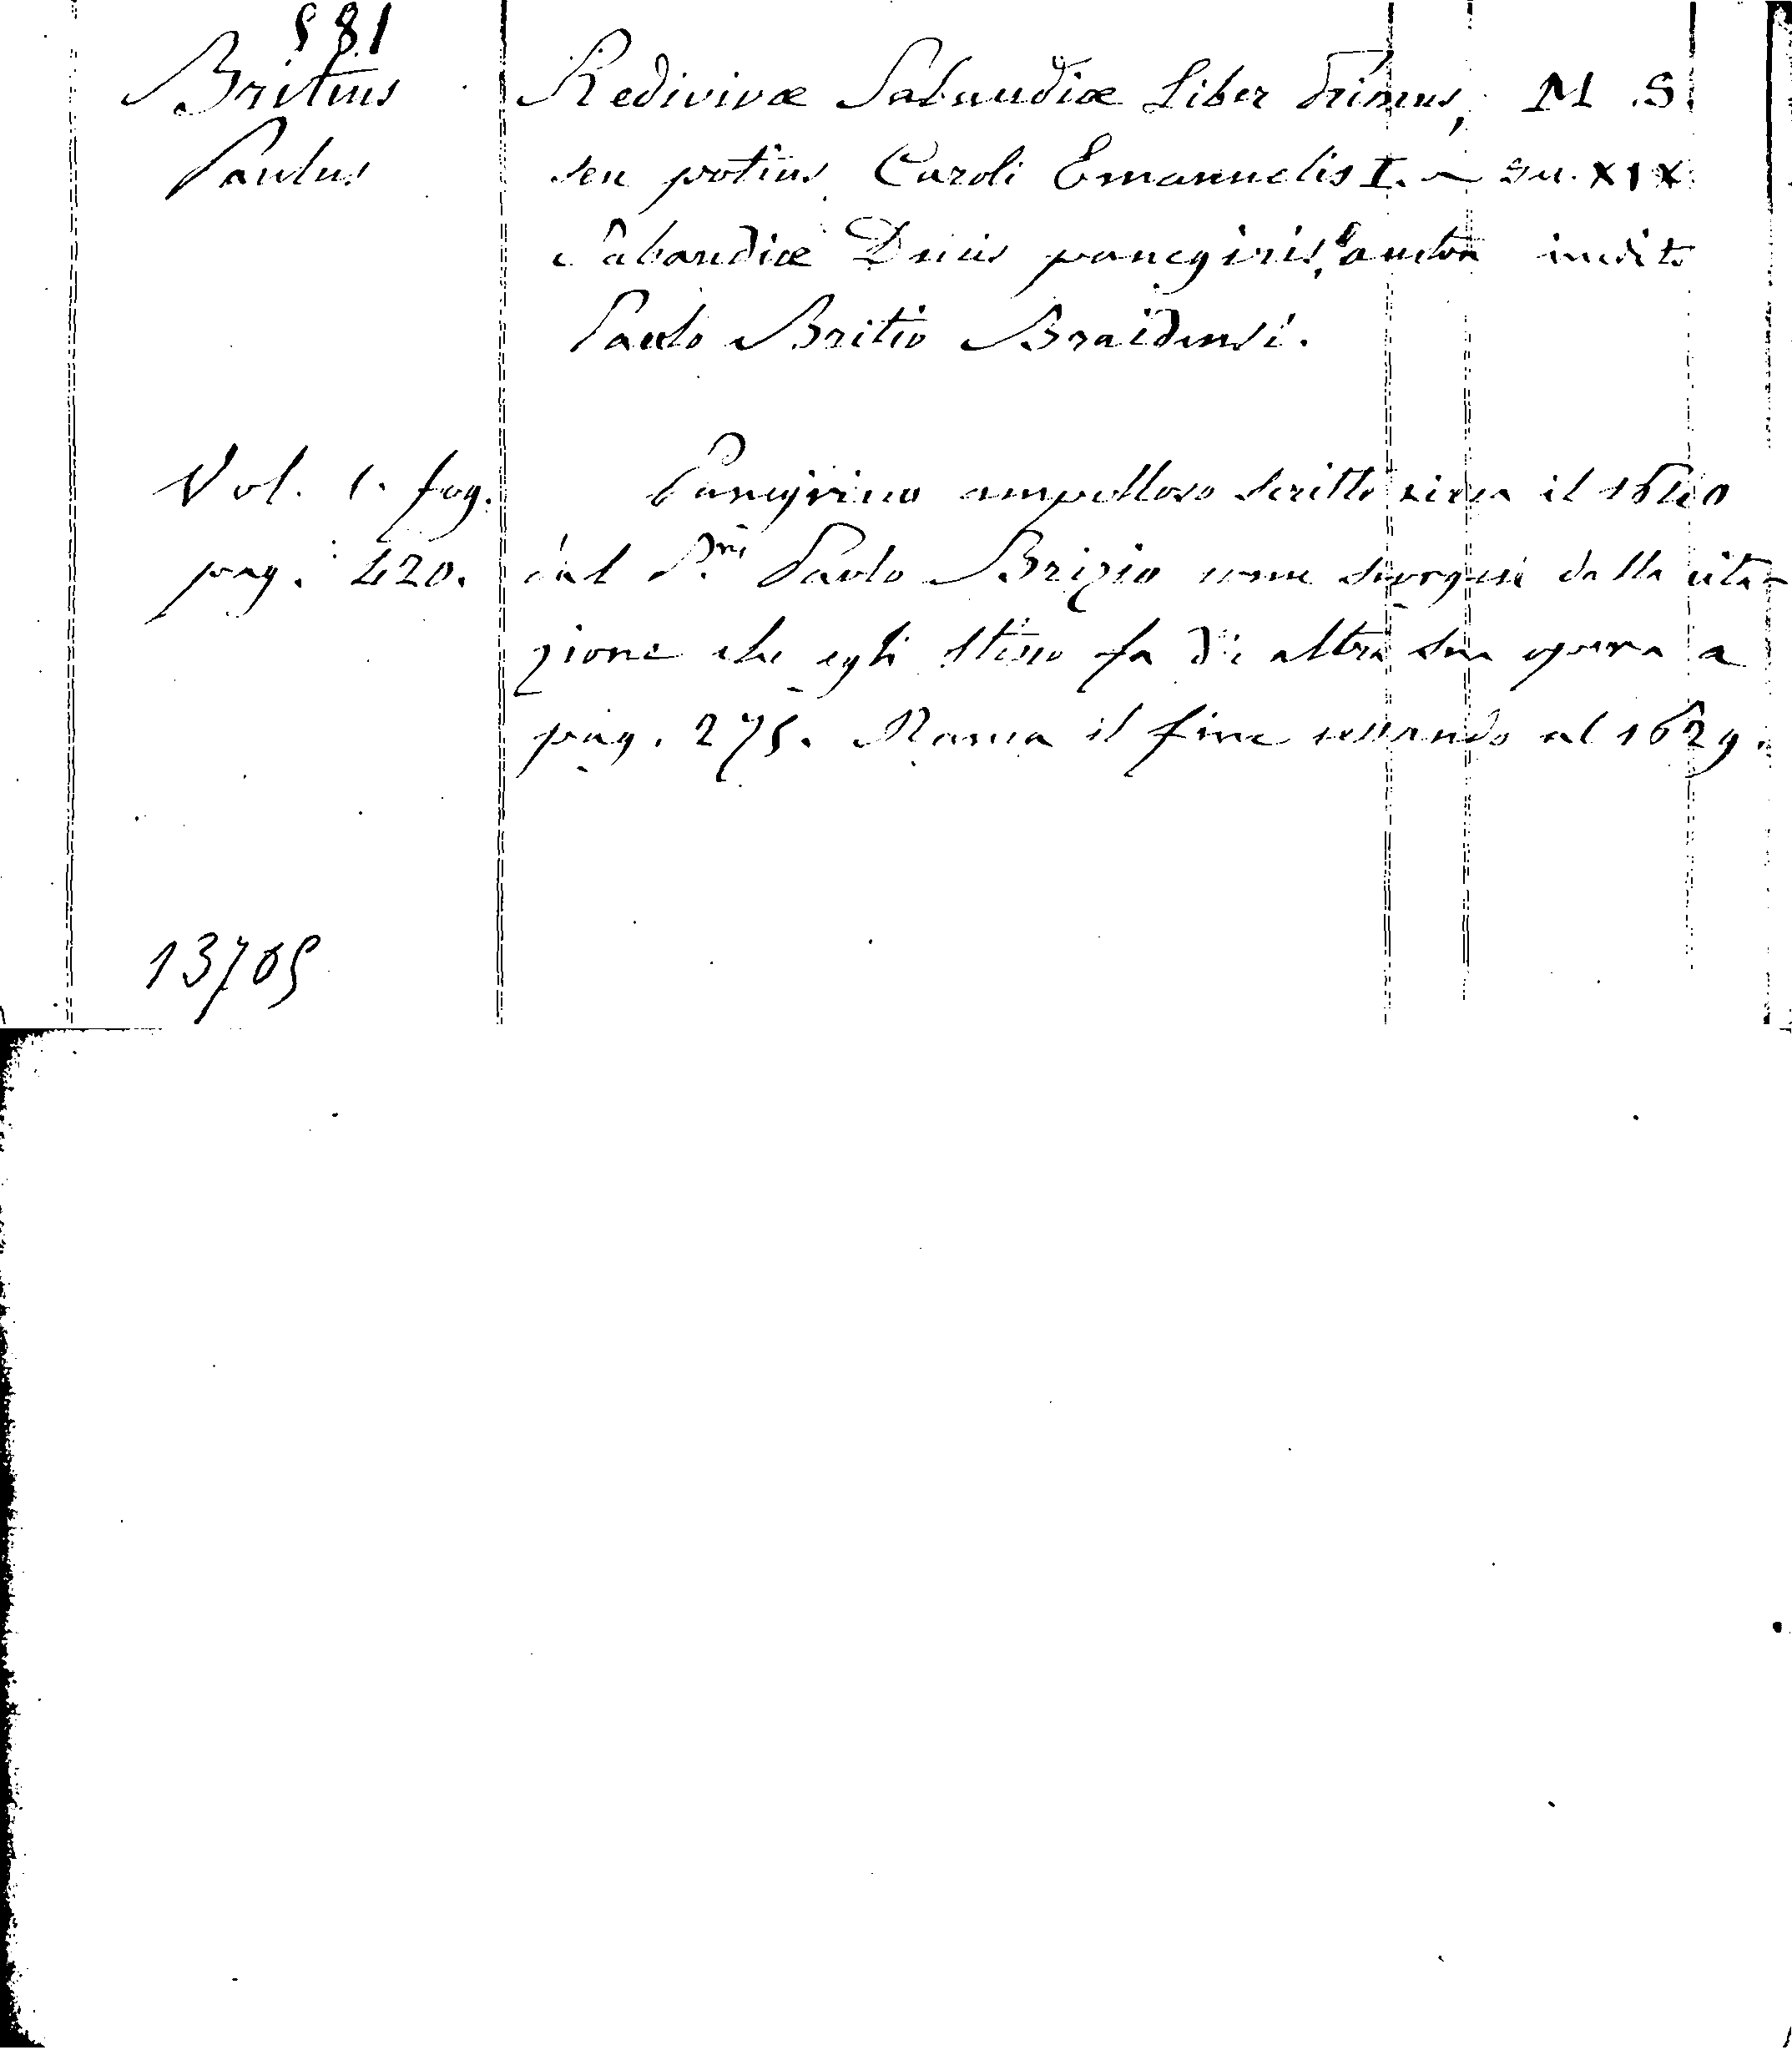 581
Britius Redivivæ Sabaudiæ Liber Primus, M.S.
Paulus seu potius Caroli Emanuelis I. XIX
Sabaudiæ Ducis panegiris, auctore inedito
Paulo Britio Braidensi.
Vol. 1. fog. Panegirico ampolloso scritto circa il 1640
pag. 420. dal P.re Paolo Brizio come scorgesi dalla cita-
zione che egli stesso fa di altra sua opera a
pag. 275. Manca il fine cessando al 1629.
13705